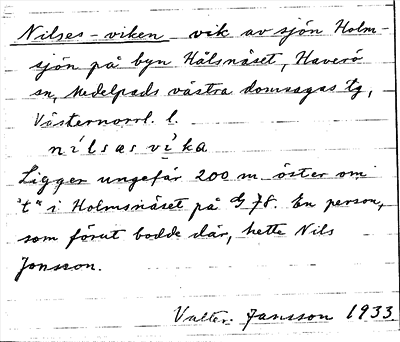 Nilses-viken vik av sjön Holm-
sjön på byn Hålsnäset, Haverö
sn, Medelpads västra domsagas tg,
Västernorrl. l.
nilsasvika
Ligger ungefär 200 m öster om
"t" i Holmsnäset på G 78. En person,
som förut bodde där, hette Nils
Jonsson.
Valter Jansson 1933.